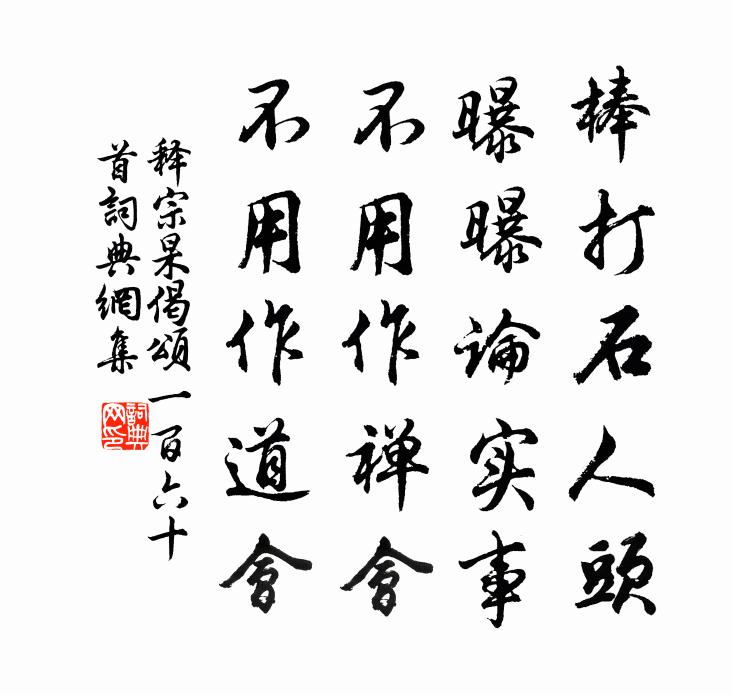 棒打石人頭
曝曝論实事
不用作禅會
不用作道會
释宗杲偈頌一百六十
首詞典網集
詞典
网印